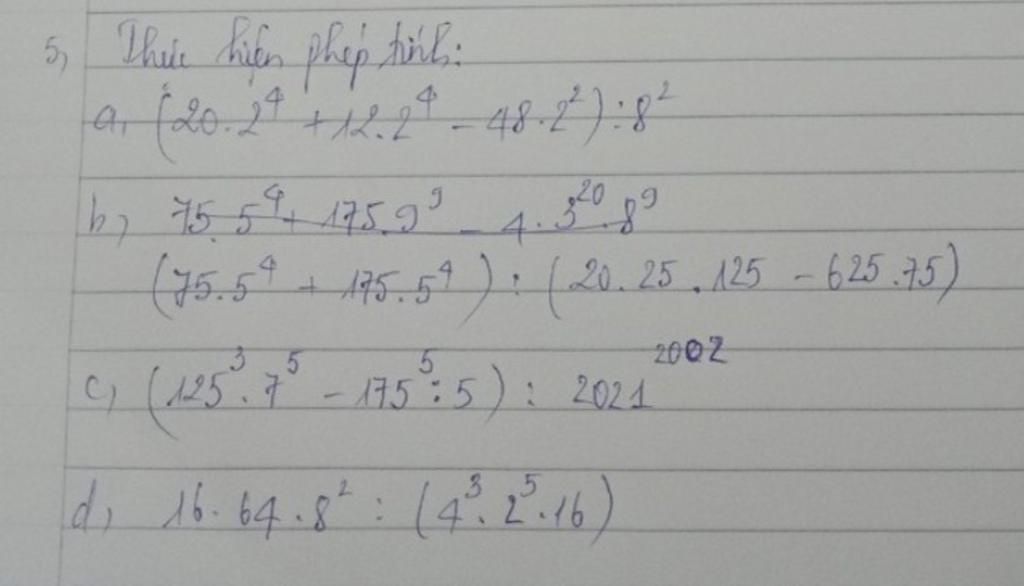 5, Thực hiện phép tính:
a, (20.2⁴ + 12.2⁴ - 48.2²) : 8²
b, 75.5⁴ + 175.9⁹ - 4.3²⁰.8⁹
(75.5⁴ + 175.5⁴) : (20.25.125 - 625.75)
c, (125³.7⁵ - 175⁵:5) : 2021²⁰⁰²
d, 16.64.8² : (4³.2⁵.16)